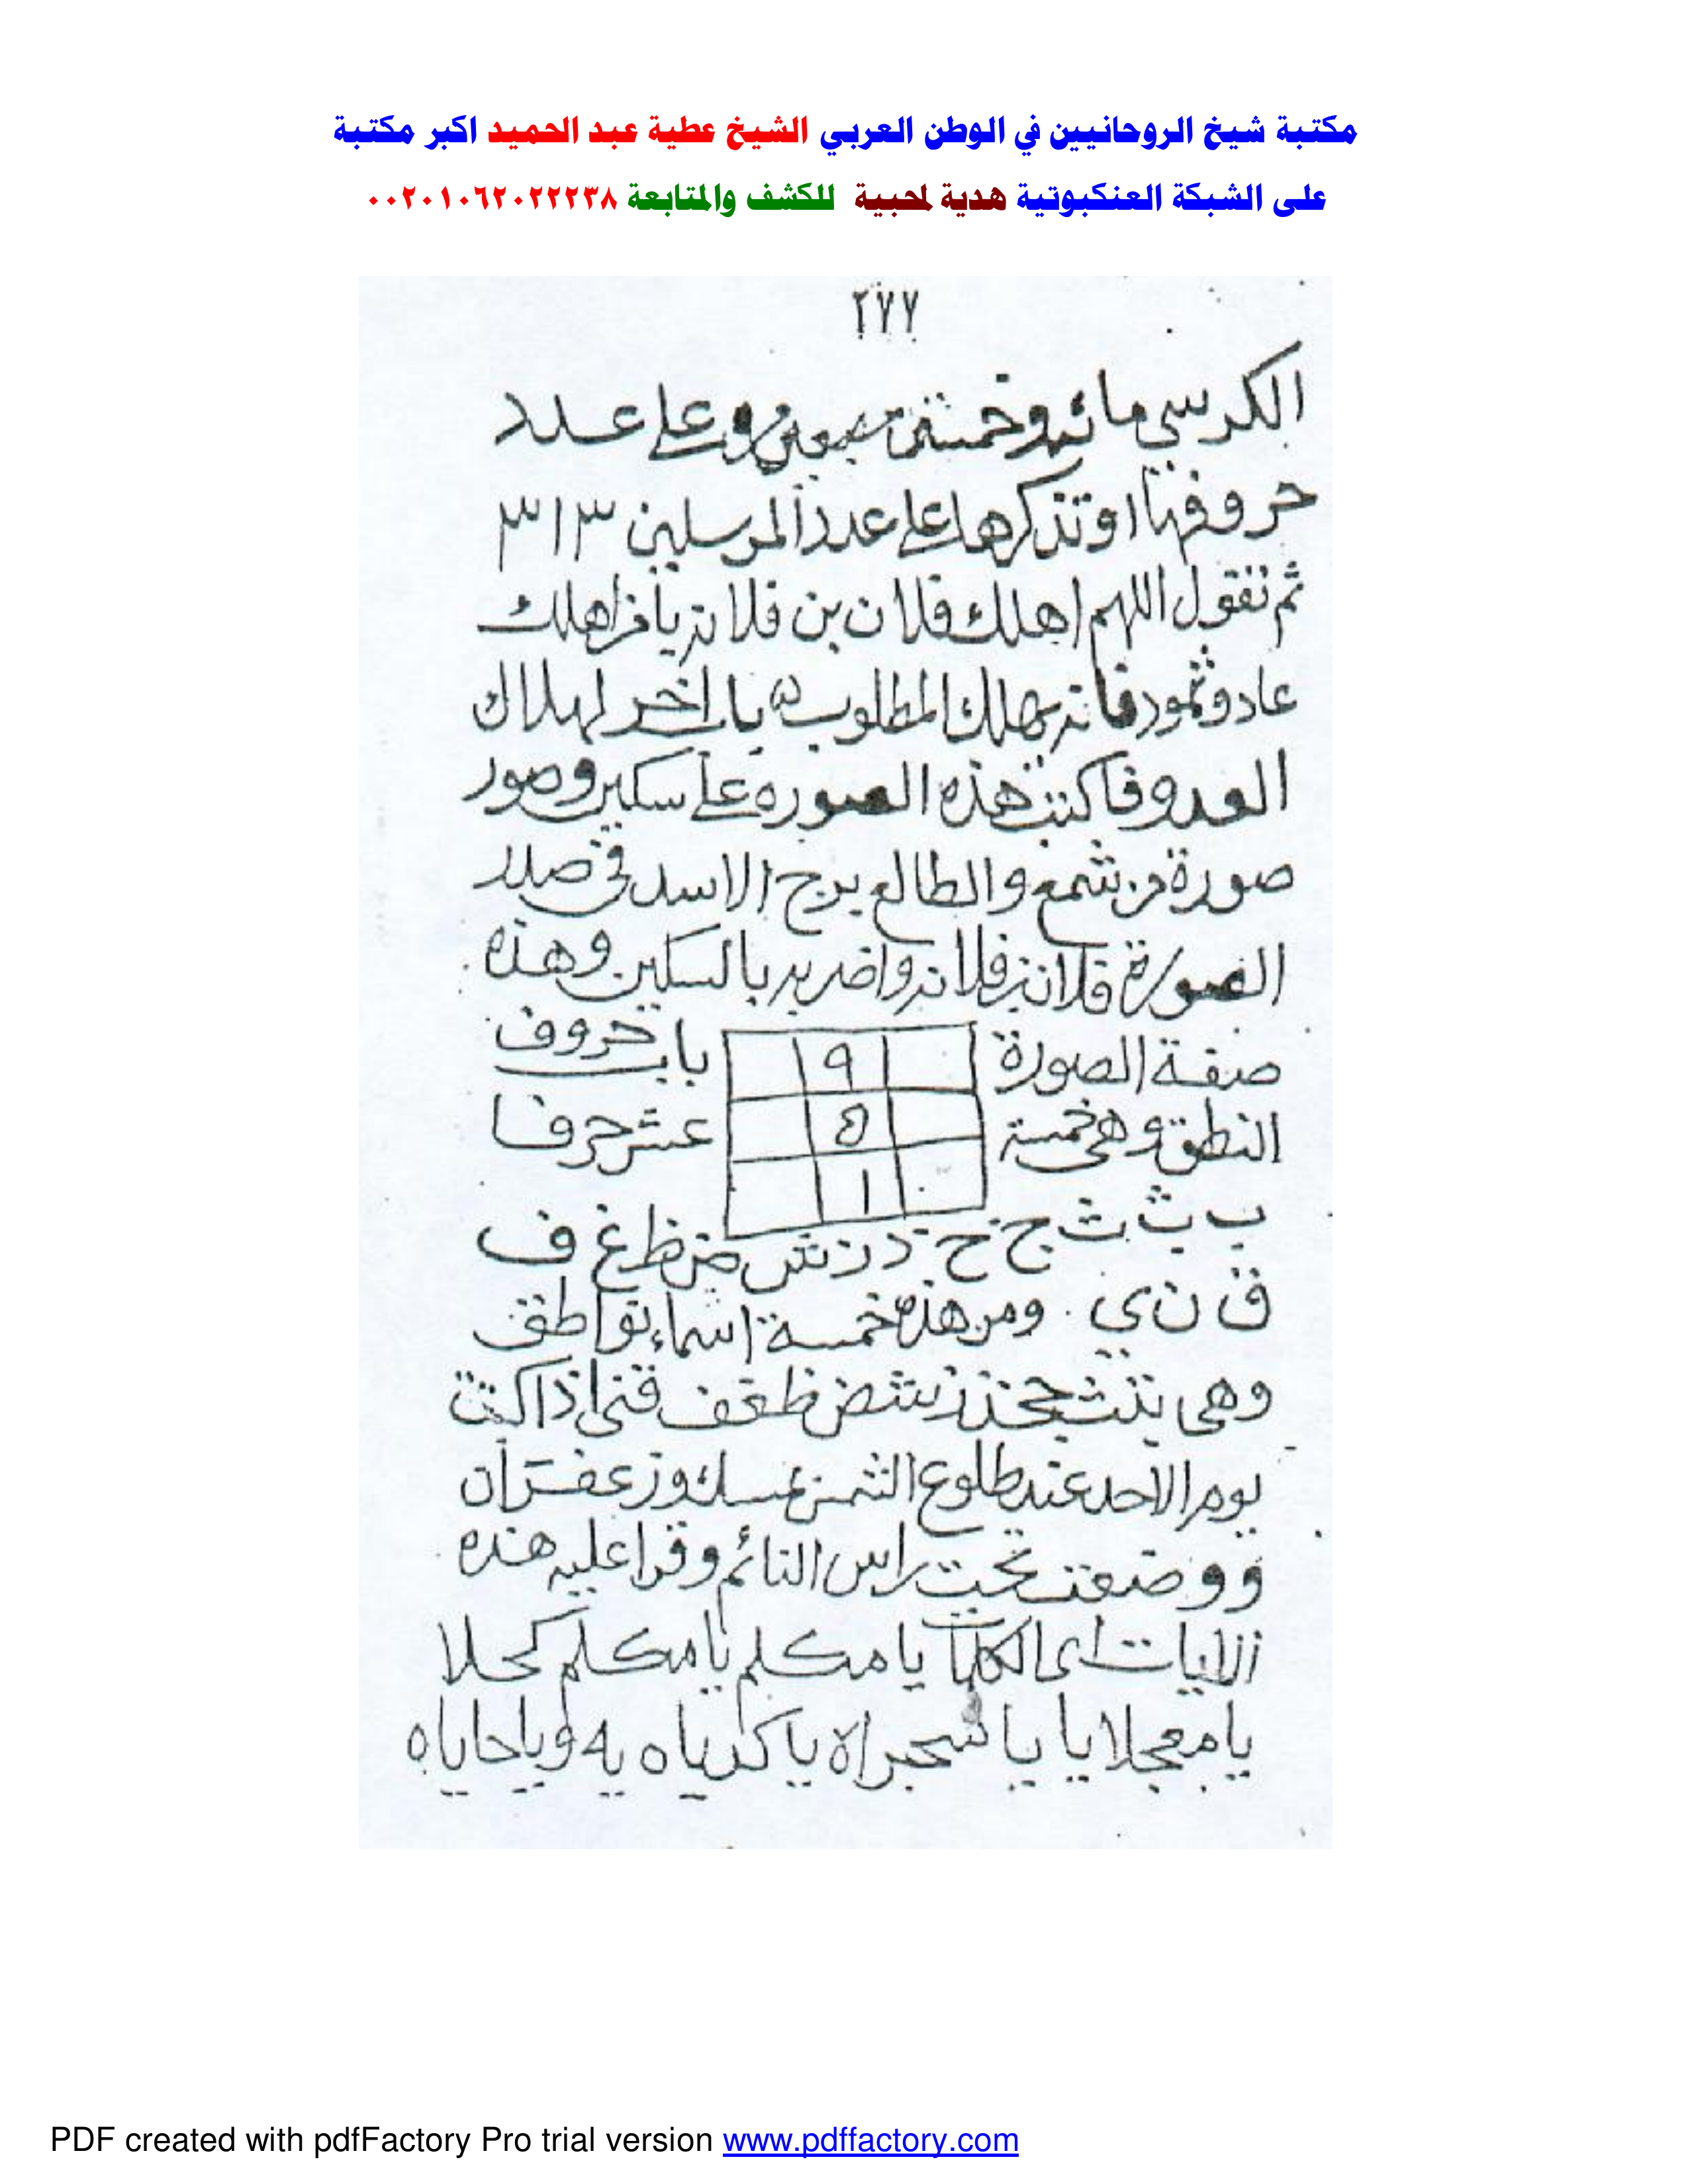 مكتبة شيخ الروحانيين في الوطن العربي الشيخ عطية عبد الحميد اكبر مكتبة
على الشبكة العنكبوتية هدية لمحبية للكشف والمتابعة ٠٠٢٠١٠٦٢٠٢٢٢٣٨
٢٧٧
الكرسي مائه وخمسة سبعين وعلى عدد
حروفها او تذكرها على عدد المرسلين ٣١٣
ثم تقول اللهم اهلك فلان بن فلانه يا من اهلك
عاد وثمود فانه يهلك المطلوب باب اخر لهلاك
العدو فاكتب هذه الصوره على سكين وصور
صورة من شمع والطالع برج الاسد في صدر
الصورة فلان بن فلانه واضربه بالسكين وهذه
صفة الصورة
٩
باب حروف
النطق وهي خمسة
٥
عشر حرفا
١
ب ت ث ج خ ذ ز ش ض ظ غ ف
ق ن ي ومن هذه خمسة اسماء نواطق
وهي بتث جخذ زشض ظغف قني اذا كتبت
يوم الاحد عند طلوع الشمس بمسك وزعفران
ووضعت تحت راس النائم وقرا عليه هذه
الايات اى الكلمات يا مكلم يا مكلم كحلا
يا معجلا يا يا يا كدياه يه ويا حاياه
PDF created with pdfFactory Pro trial version www.pdffactory.com